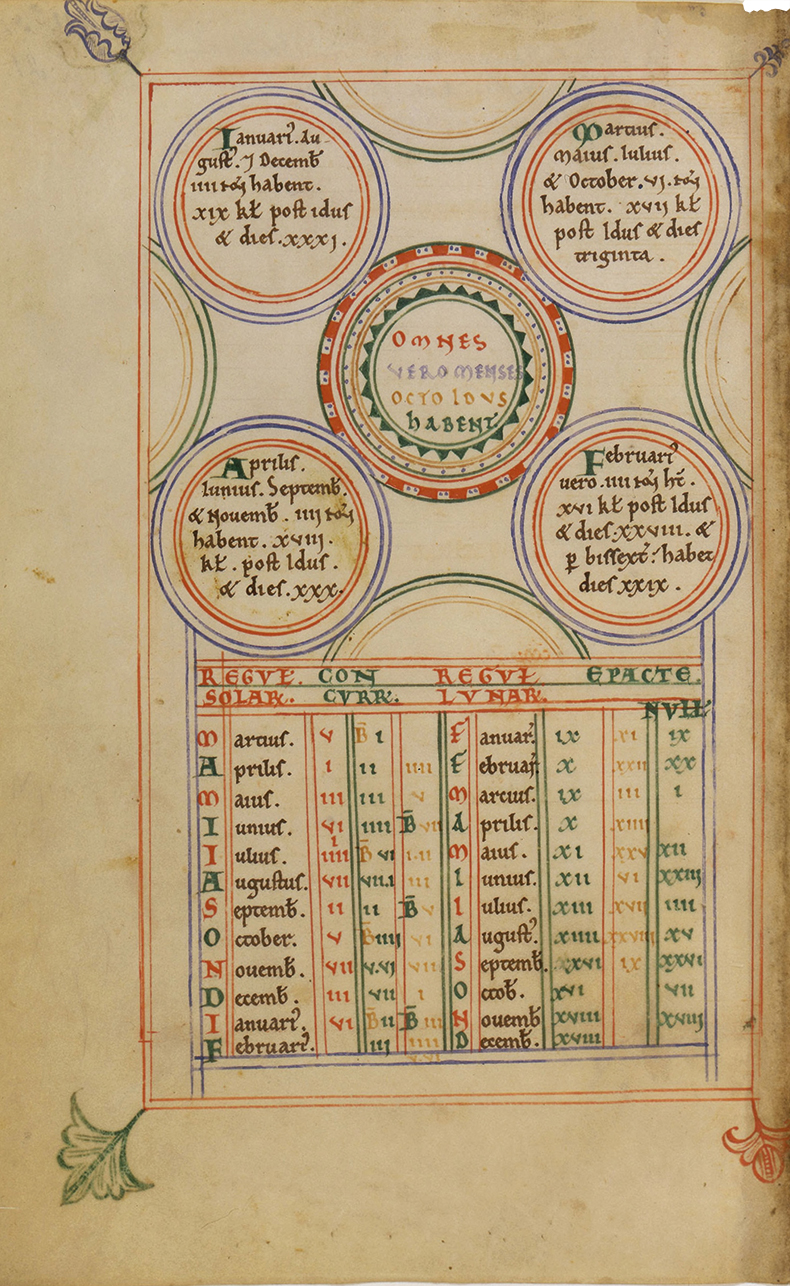 Ianuarī. Au-
gust̄. ⁊ Decemb̄
iiii habent.
xix kł post idus
& dies. xxxj.
Martius.
Maius. Iulius.
& October. vi.
habent. xvij kł
post Idus & dies
triginta.
OMNES
VERO MENSES
OCTO IDVS
HABENT
Aprilis.
Iunius. Septemb̄.
& Nouemb̄. iiij
habent. xviij.
kł. post Idus.
& dies. xxx.
Februari᾽
uero. iiii hn̄t.
xvi kł post Idus
& dies. xxviii. &
p̱ bissext᾽ habet
dies xxix.
REGVŁ. CON REGVŁ EPACTE.
SOLAR. CVRR. LVNAR. NVŁŁ
Martius. v B̄ i Ianuar᾽. ix xi ix
Aprilis. i ii iiii Februar᾽. x xxii xx
Maius. iii iii v Marcius. ix iii i
Iunius. vi iiii B̄ vii Aprilis. x xiiii
Iulius. iiii B̄ vi i.ii Maius. xi xxv xii
Augustus. vii vii.i iii Iunius. xii vi xxiij
Septemb̄. ii ii B̄ v Iulius. xiii xvii iiii
October. v B̄ iiij vi August᾽. xiiii xxviii xv
Nouemb̄. vii v.vj vii Septemb̄. xxvi ix xxvi
Decemb̄. iii vii i Octob̄. xvi vii
Ianuari᾽. vi B̄ ii B̄ iii Nouemb̄ xviii xviij
Februari᾽. iij iiii Decemb̄. xviii